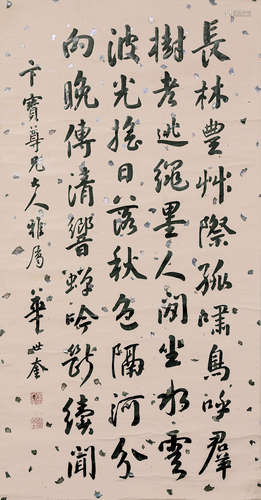 長林豐艸際孤嘯鳥呼羣
樹老逃繩墨人閒坐水雲
波光搖日落秋色隔河分
向晚傳清響蟬吟斷續聞
卞寶尊兄大人雅屬
華世奎